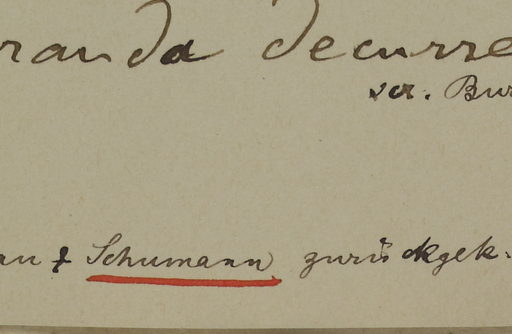 randa decurre
scr. Bur
an & Schumann zurückgek.